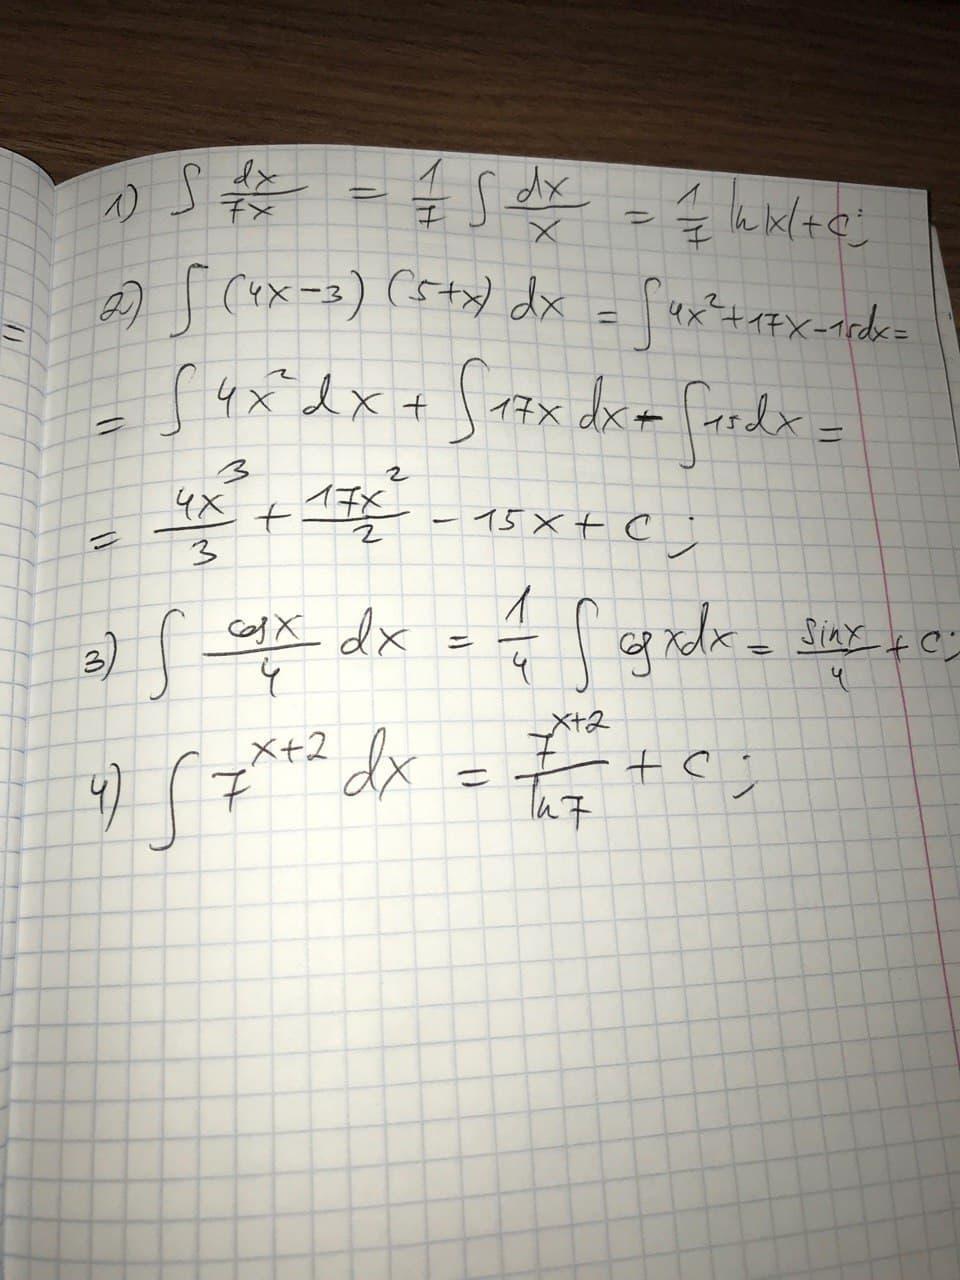 1) ∫ dx/7x = 1/7 ∫ dx/x = 1/7 ln|x| + C;
2) ∫ (4x-3) (5+x) dx = ∫ 4x² + 17x - 15dx =
= ∫ 4x² dx + ∫ 17x dx - ∫ 15dx =
= 4x³/3 + 17x²/2 - 15x + C;
3) ∫ cosx/4 dx = 1/4 ∫ cosxdx = sinx/4 + C;
4) ∫ 7^(x+2) dx = 7^(x+2)/ln7 + C;
=